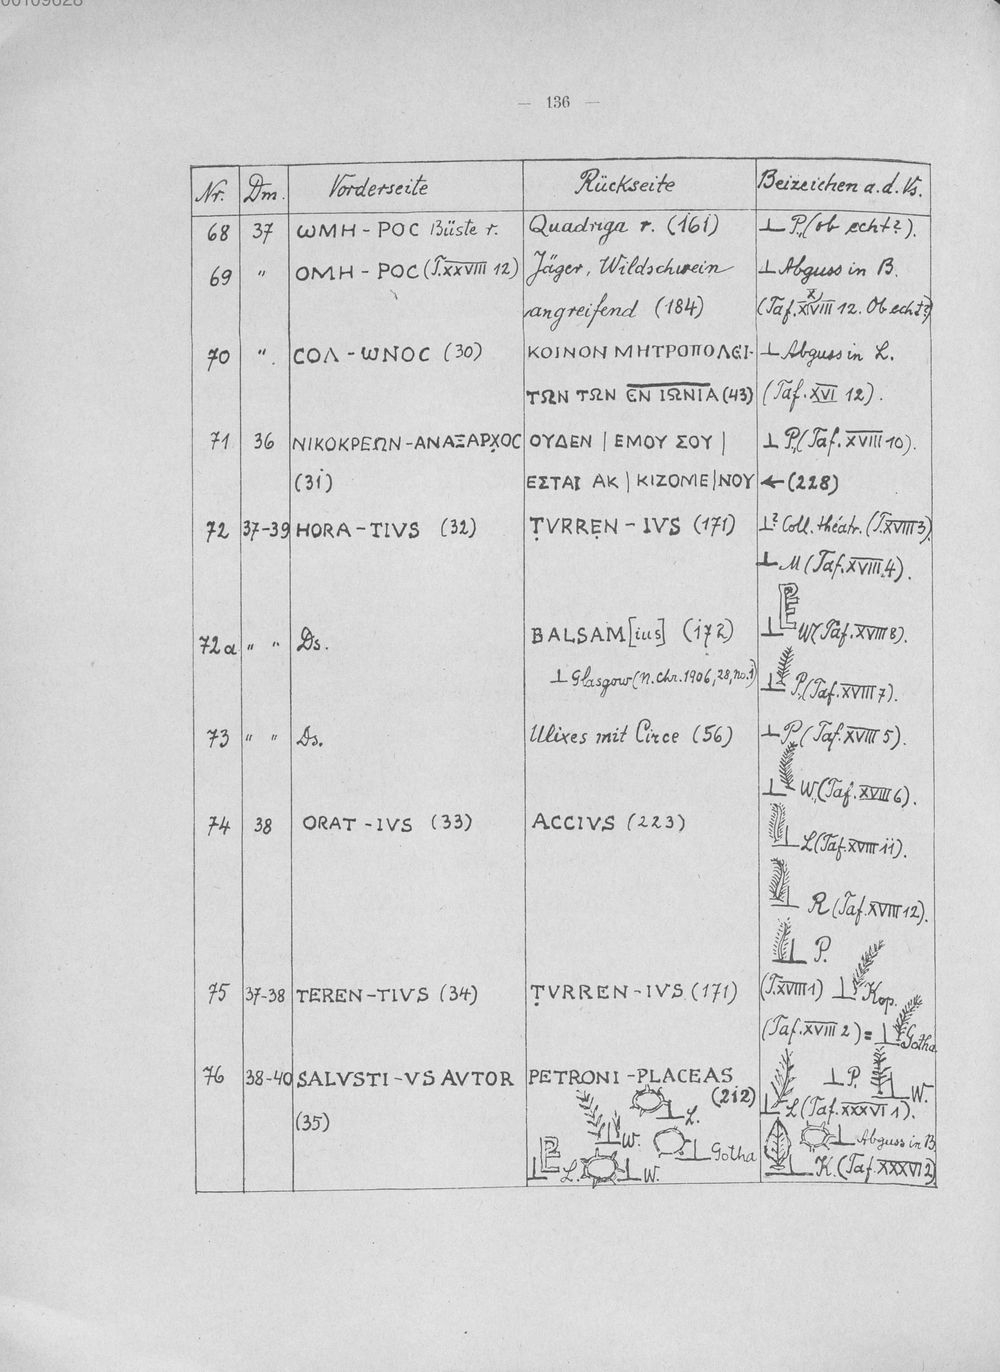 00109628
— 136 —
Nr. Dm. Vorderseite Rückseite Beizeichen a.d.Vs.
68 37 ωMH - POC Büste r. Quadriga r. (161) ⊥ P. (ob echt?).
69 " OMH - POC (T.XXVIII 12) Jäger, Wildschwein ⊥ Abguss in B.
angreifend (184) (Taf. XXVIII 12. Ob echt?)
70 " COΛ - ωNOC (30) KOINON MHTPOΠOΛEI- ⊥ Abguss in L.
TΩN TΩN EN IΩNIA (43) (Taf. XVI 12).
71 36 NIKOKPEΩN - ANAΞAPXOC OYΔEN | EMOY ΣOY | ⊥ P. (Taf. XVIII 10).
(31) EΣTAI AK | KIZOME | NOY ← (228)
72 37-39 HORA - TIVS (32) ṬVRREṆ - IVS (171) ⊥? Coll. théatr. (T. XVIII 3)
⊥ M (Taf. XVIII. 4).
72a " " Ds. BALSAM[ius] (172) ⊥ PE W (Taf. XVIII 8).
⊥ Glasgow (N. Chr. 1906, 28, no. 1) ⊥ P. (Taf. XVIII 7).
73 " " Ds. Ulixes mit Circe (56) ⊥ P. (Taf. XVIII 5).
⊥ W. (Taf. XVIII 6).
74 38 ORAT - IVS (33) ACCIVS (223)
⊥ L (Taf. XVIII 11).
⊥ R (Taf. XVIII 12).
⊥ P.
75 37-38 TEREN - TIVS (34) ṬVRREN - IVS (171) (T. XVIII 1) ⊥ Kop.
(Taf. XVIII 2) = ⊥ Gotha
76 38-40 SALVSTI - VS AVTOR PETRONI - PLACEAS ⊥ P. ⊥ W.
(212) ⊥ L. ⊥ L (Taf. XXXVI 1).
(35) ⊥ W. ⊥ Gotha ⊥ Abguss in B
⊥ PE L. ⊥ W. ⊥ K. (Taf. XXXVI 2)